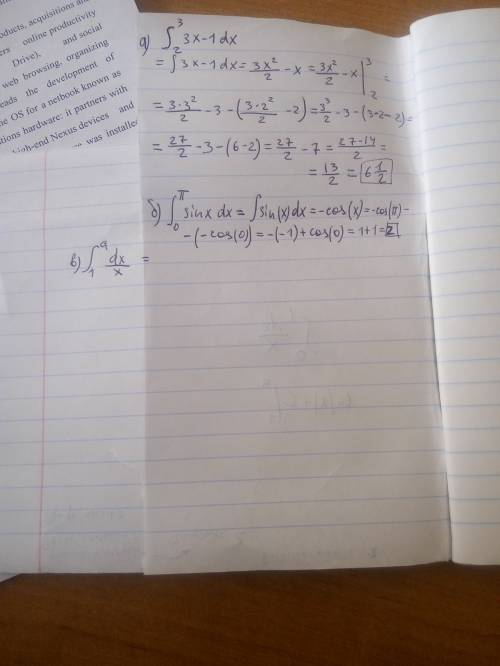 oducts, acquisitions and
ers online productivity
Drive), and social
web browsing, organizing
eads the development of
ne OS for a netbook known as
tions hardware: it partners with
high-end Nexus devices and
was installe
а) ∫₂³ 3x-1 dx
= ∫3x-1 dx = 3x²/2 - x = 3x²/2 - x |₂³ =
= 3·3²/2 - 3 - (3·2²/2 - 2) = 3³/2 - 3 - (3·2-2) =
= 27/2 - 3 - (6-2) = 27/2 - 7 = 27-14/2 =
= 13/2 = 6 1/2
б) ∫₀^π sinx dx = ∫sin(x)dx = -cos(x) = -cos(π) -
- (-cos(0)) = -(-1) + cos(0) = 1+1 = 2
в) ∫₁^a dx/x =